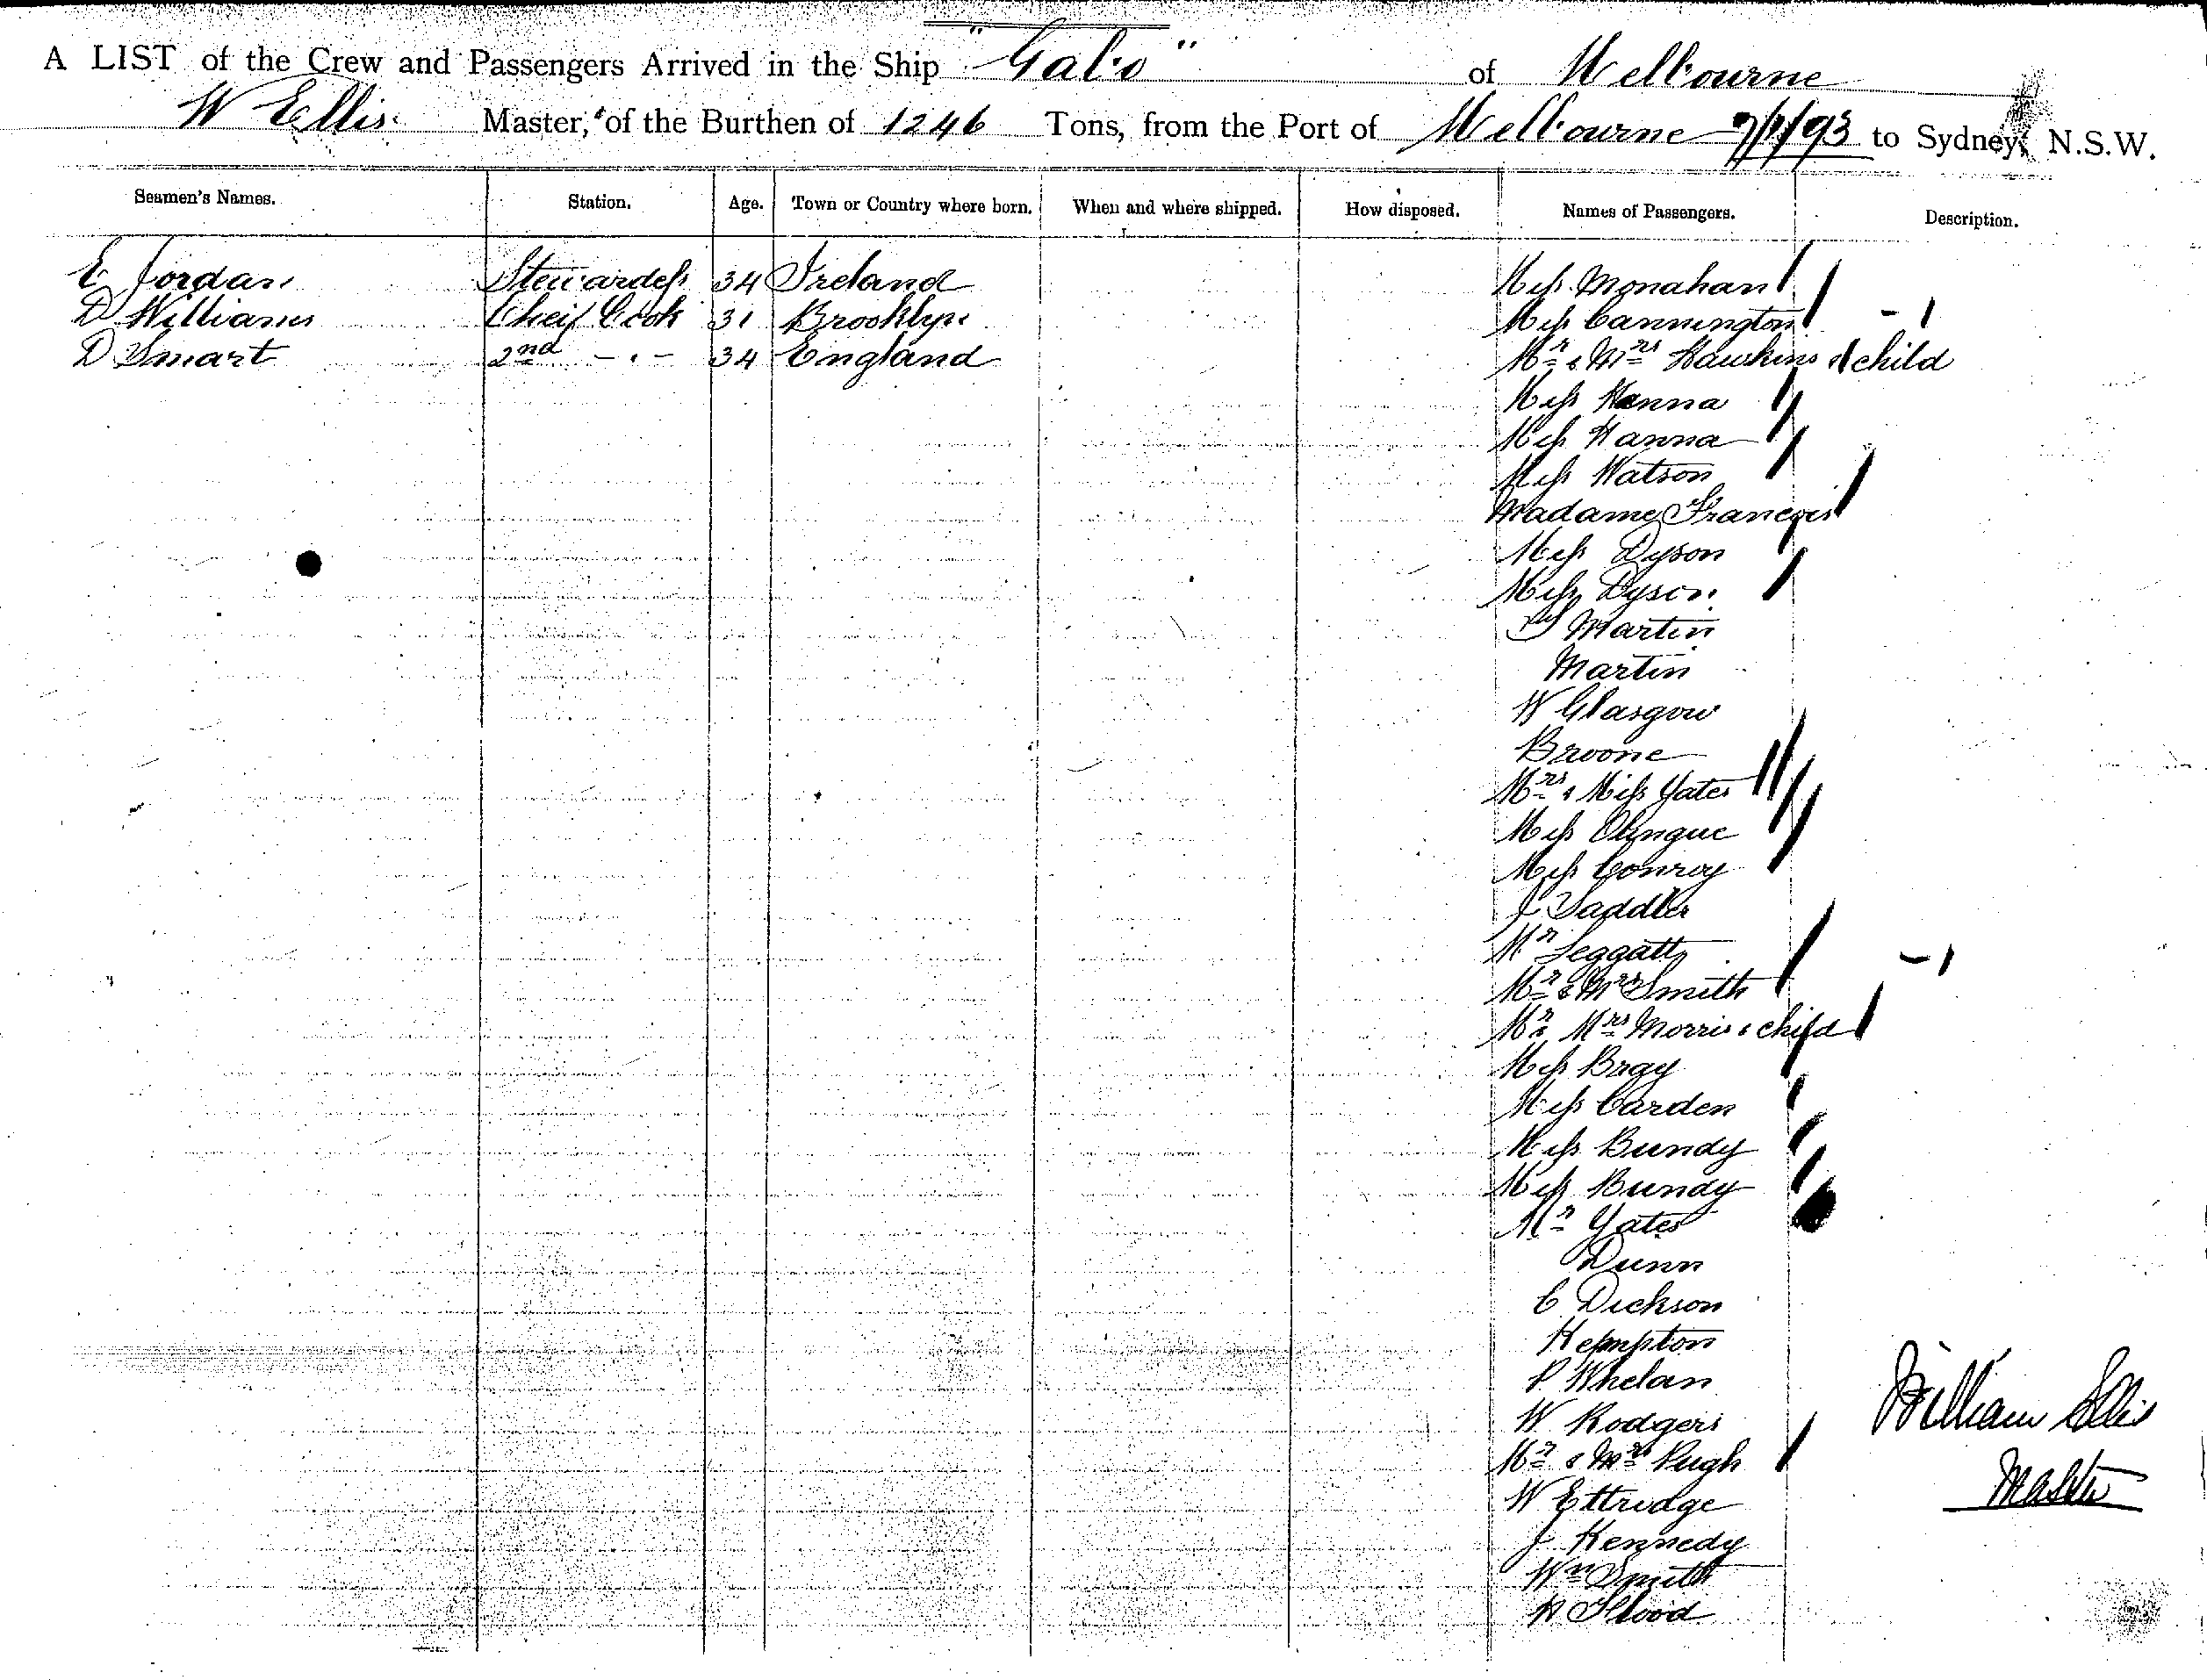 A LIST of the Crew and Passengers Arrived in the Ship "Gabo" of Melbourne
W Ellis Master, of the Burthen of 1246 Tons, from the Port of Melbourne 7/1/93 to Sydney, N.S.W.
Seamen's Names. Station. Age. Town or Country where born. When and where shipped. How disposed. Names of Passengers. Description.
E Jordan Stewardess 34 Ireland Miss Monahan
D Williams Cheif Cook 31 Brooklyn Miss Cannington - 1
D Smart 2nd - . - 34 England Mr & Mrs Hawkins & child
Miss Hanna
Miss Hanna
Miss Watson
Madame François
Miss Dyson
Miss Dyson
Martin
Martin
W Glasgow
Broone
Mrs & Miss Yates
Miss
Miss Conroy
J Saddler
Mr Leggatt - 1
Mr & Mrs Smith
Mr & Mrs Morris & child
Miss Bray
Miss Carden
Miss Bundy
Miss Bundy
Mr Yates
Dunn
C Dickson
Hempton
P Whelan
W Rodgers
Mr & Mrs Pugh
W Ettridge
J Kennedy
Wm Smith
Flood
William Ellis
Master